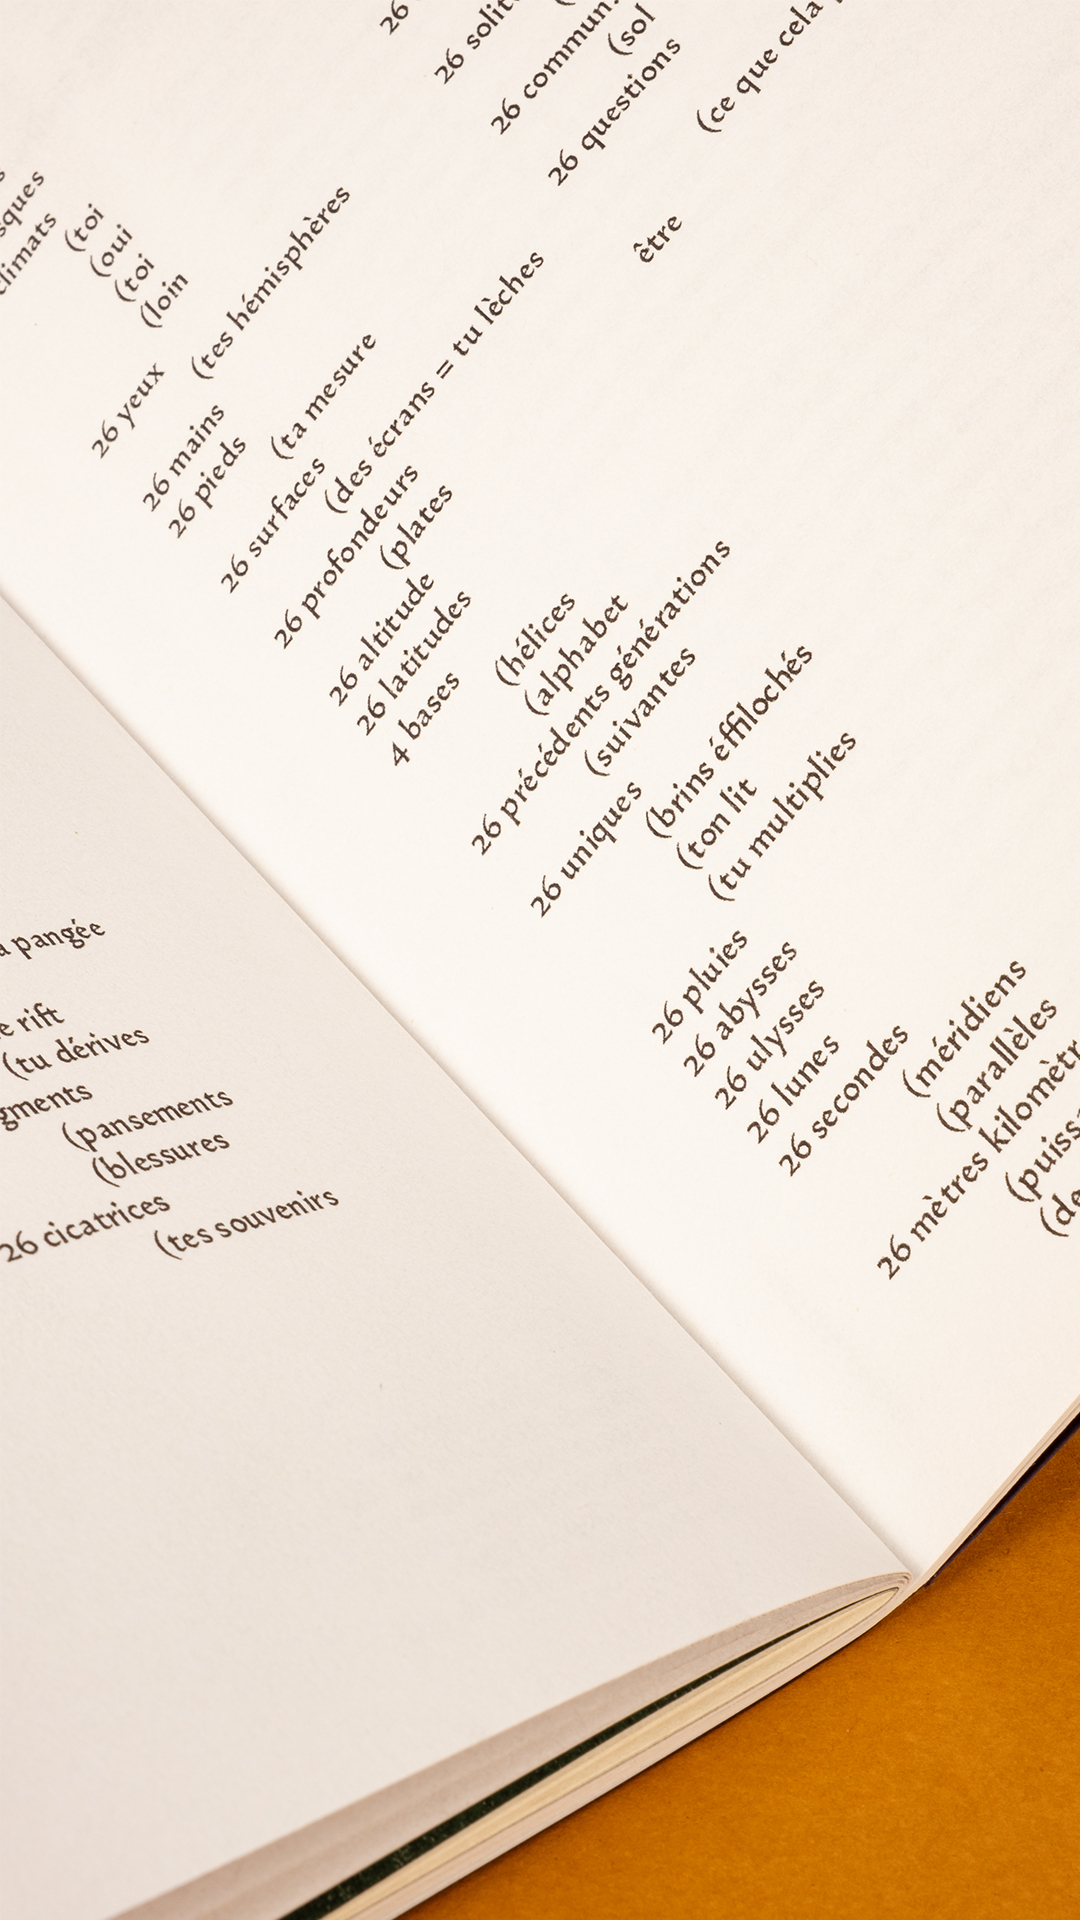 pangée
rift
(tu dérives
(pansements
(blessures
26 cicatrices
(tes souvenirs
(toi
(oui
(toi
(loin
26 yeux
(tes hémisphères
26 mains
26 pieds
(ta mesure
26 surfaces
(des écrans = tu lèches
26 profondeurs
(plates
26 altitude
26 latitudes
4 bases
(hélices
(alphabet
26 précédents générations
(suivantes
26 uniques
(brins éffilochés
(ton lit
(tu multiplies
26 pluies
26 abysses
26 ulysses
26 lunes
26 secondes
(méridiens
(parallèles
26 mètres
26
26
26
(sol
26 questions
(ce que cela
être